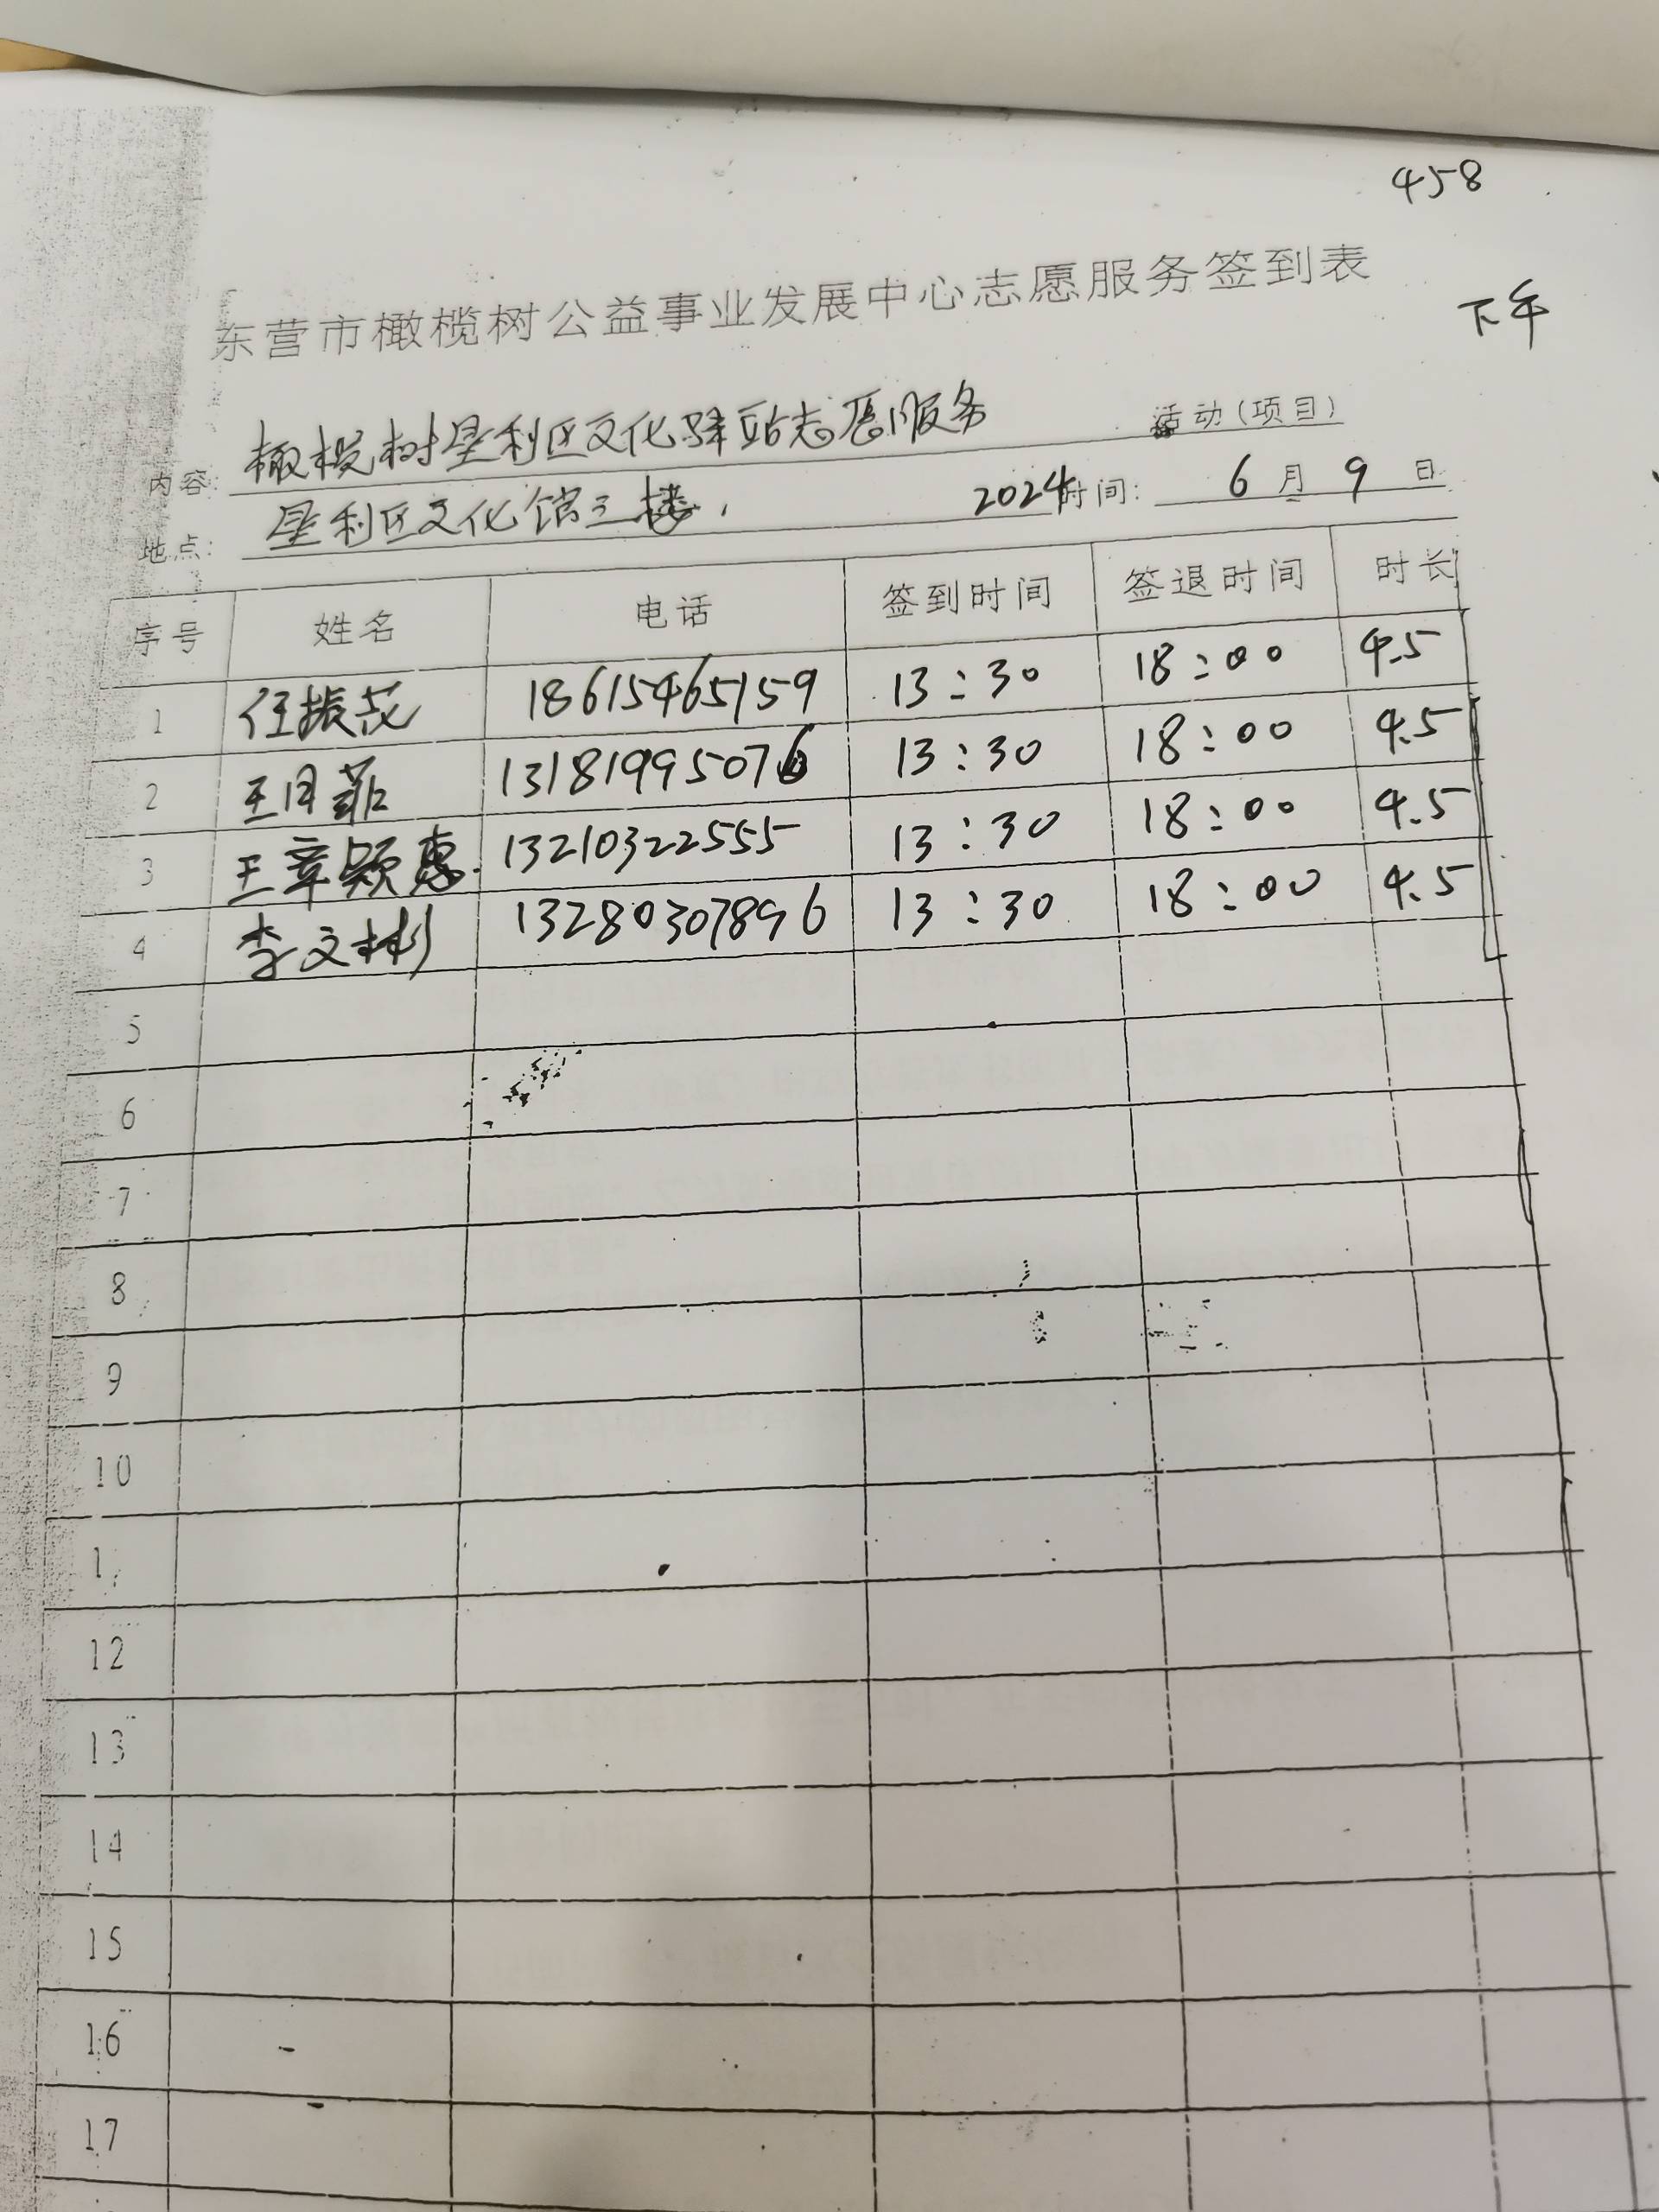 458
东营市橄榄树公益事业发展中心志愿服务签到表
下午
内容: 橄榄树垦利区文化驿站志愿服务 活动(项目)
地点: 垦利区文化馆三楼. 2024时间: 6月9日
序号 姓名 电话 签到时间 签退时间 时长
1 任振茂 18615465159 13:30 18:00 4.5
2 王月菲 13181995076 13:30 18:00 4.5
3 王章颖惠 13210322555 13:30 18:00 4.5
4 李文彬 13280307896 13:30 18:00 4.5
5
6
7
8
9
10
12
13
14
15
16
17